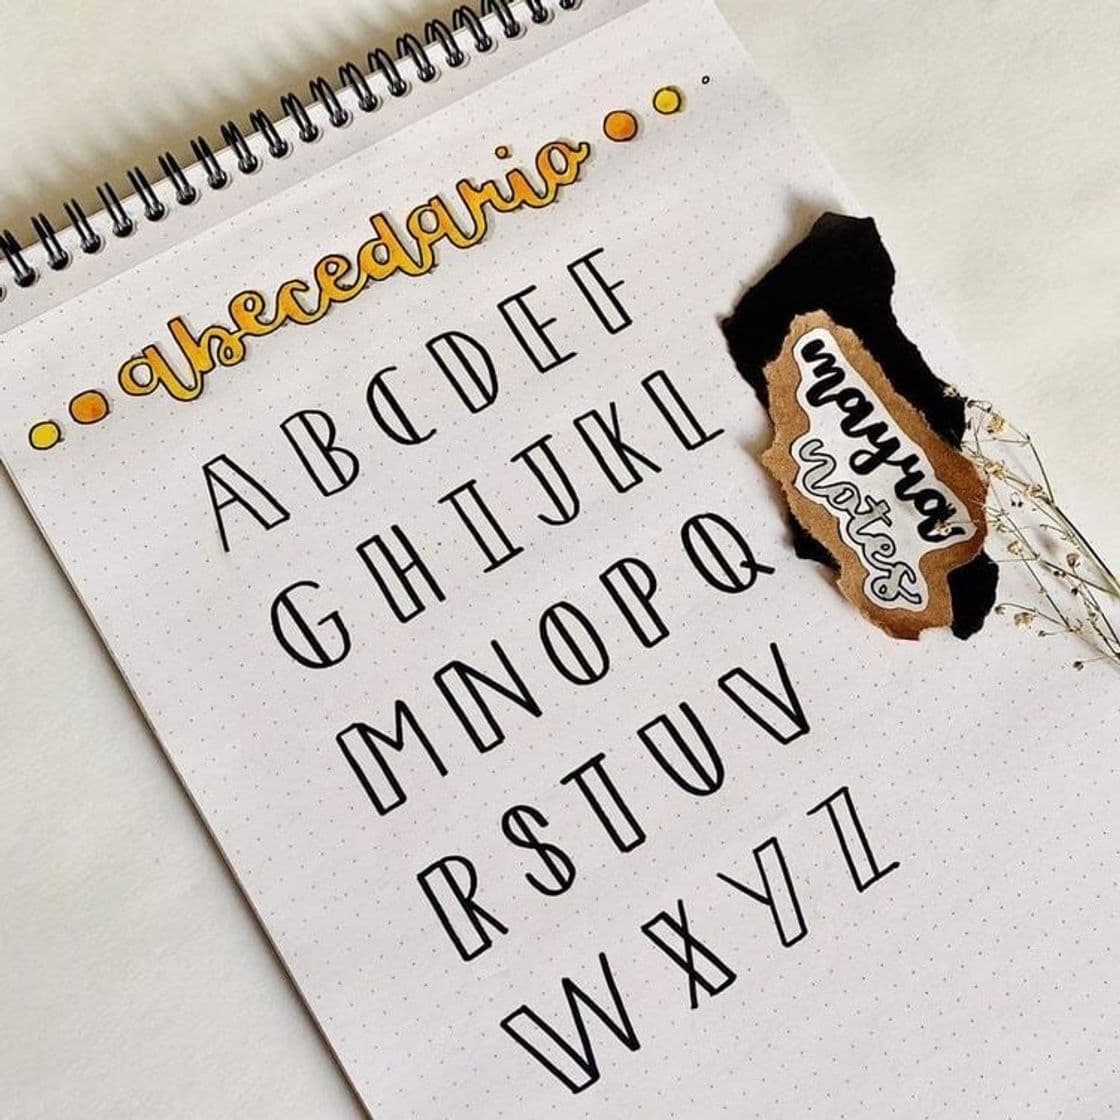 abecedario
A B C D E F
G H I J K L
M N O P Q
R S T U V
W X Y Z
mayra
notes